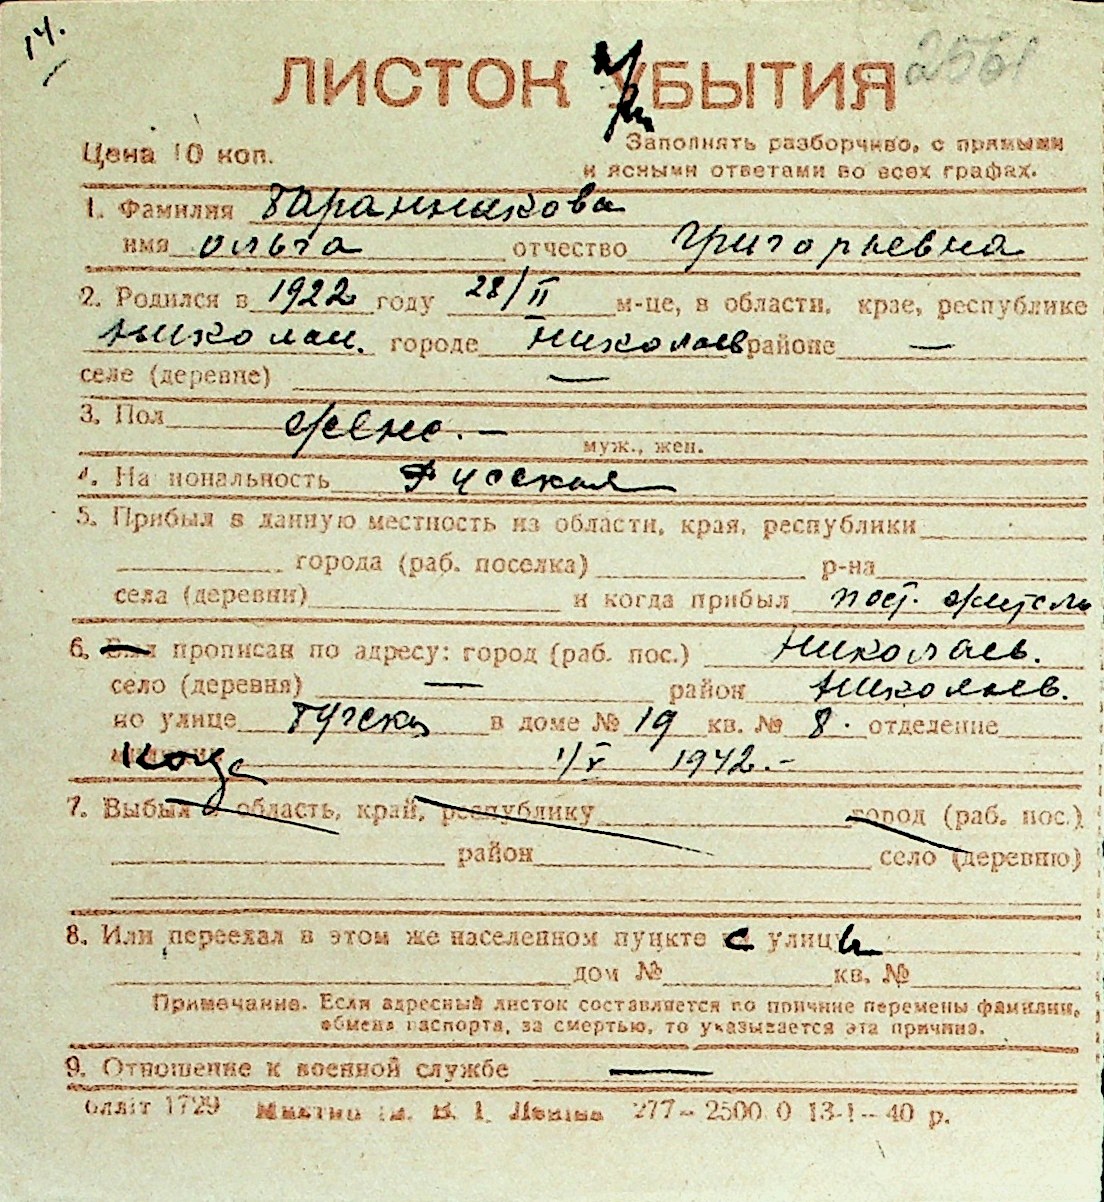 14.
ЛИСТОК УБЫТИЯ 2561
При
Цена 10 коп.
Заполнять разборчиво, с прямыми
и ясными ответами во всех графах.
1. Фамилия Таранникова
имя Ольга отчество Григорьевна
2. Родился в 1922 году 28/II м-це, в области, крае, республике
Николаи. городе Николаев районе —
селе (деревне) —
3. Пол женс. —
муж., жен.
4. На иональность Русская
5. Прибыл в данную местность из области, края, республики
города (раб. поселка) р-на
села (деревни) и когда прибыл пост. житель
6. Был прописан по адресу: город (раб. пос.) Николаев.
село (деревня) — район Николаев.
по улице в доме № 19 кв. № 8. отделение
Когда 1/V 1942. –
7. Выбыл в область, край, республику город (раб. пос.)
район село (деревню)
8. Или переехал в этом же населенном пункте с улицы
дом № кв. №
Примечание. Если адресный листок составляется по причине перемены фамилии,
обмена паспорта, за смертью, то указывается эта причина.
9. Отношение к военной службе —
блліт 1729 277 – 2500.0 13-1 – 40 р.